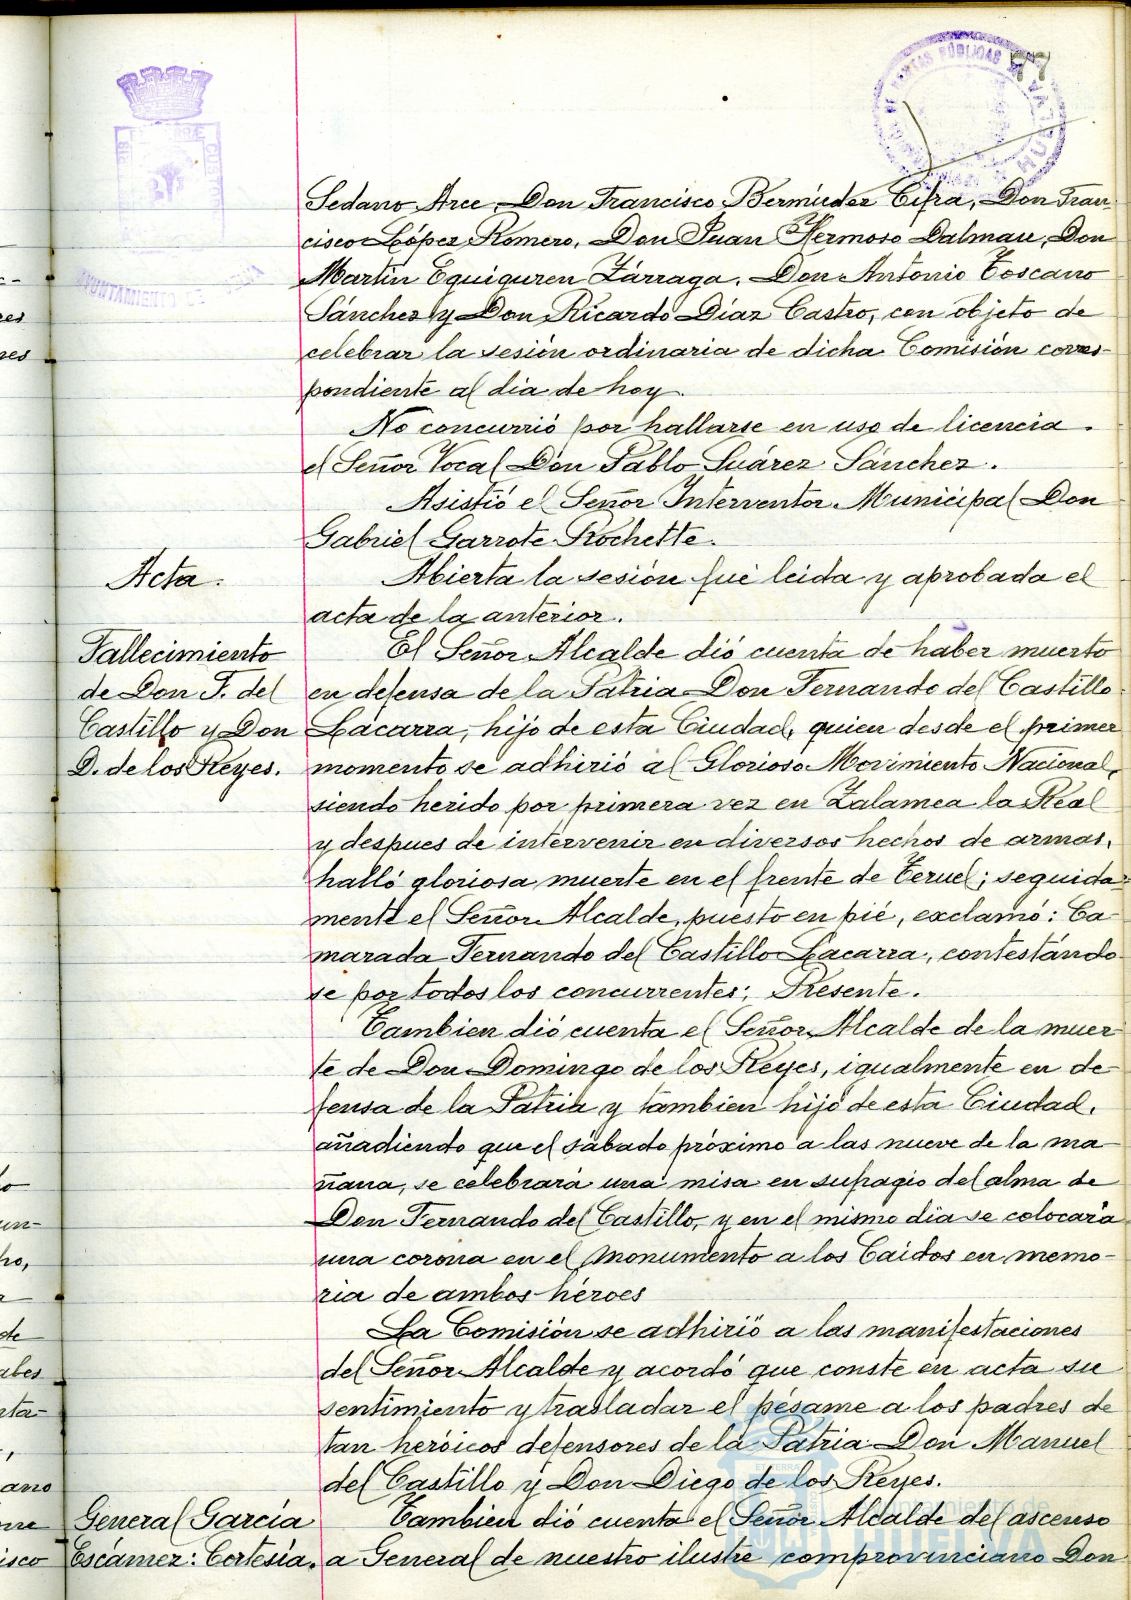 77
AYUNTAMIENTO DE
Sedano Arce, Don Francisco Bermúdez Cifra, Don Fran-
cisco López Romero, Don Juan Hermoso Dalmau, Don
Martín Equiguren Zárraga, Don Antonio Toscano
Sánchez y Don Ricardo Díaz Castro, con objeto de
celebrar la sesión ordinaria de dicha Comisión corres-
pondiente al dia de hoy.
No concurrió por hallarse en uso de licencia
el Señor Vocal Don Pablo Suárez Sánchez.
Asistió el Señor Interventor Municipal Don
Gabriel Garrote Rochette.
Acta.
Abierta la sesión fué leida y aprobada el
acta de la anterior.
Fallecimiento
de Don F. del
Castillo y Don
D. de los Reyes.
El Señor Alcalde dió cuenta de haber muerto
en defensa de la Patria Don Fernando del Castillo
Lacarra, hijo de esta Ciudad, quien desde el primer
momento se adhirió al Glorioso Movimiento Nacional,
siendo herido por primera vez en Zalamea la Real
y despues de intervenir en diversos hechos de armas,
halló gloriosa muerte en el frente de Teruel; seguida-
mente el Señor Alcalde, puesto en pié, exclamó: Ca-
marada Fernando del Castillo Lacarra, contestándo-
se por todos los concurrentes; Presente.
Tambien dió cuenta el Señor Alcalde de la muer-
te de Don Domingo de los Reyes, igualmente en de-
fensa de la Patria y tambien hijo de esta Ciudad,
añadiendo que el sábado próximo a las nueve de la ma-
ñana, se celebrará una misa en sufragio del alma de
Don Fernando del Castillo, y en el mismo dia se colocará
una corona en el Monumento a los Caidos en memo-
ria de ambos héroes
La Comisión se adhirió a las manifestaciones
del Señor Alcalde y acordó que conste en acta su
sentimiento y trasladar el pésame a los padres de
tan heróicos defensores de la Patria Don Manuel
del Castillo y Don Diego de los Reyes.
General García
Escámez: Cortesía.
Tambien dió cuenta el Señor Alcalde del ascenso
a General de nuestro ilustre comprovinciano Don
Ayuntamiento de
HUELVA